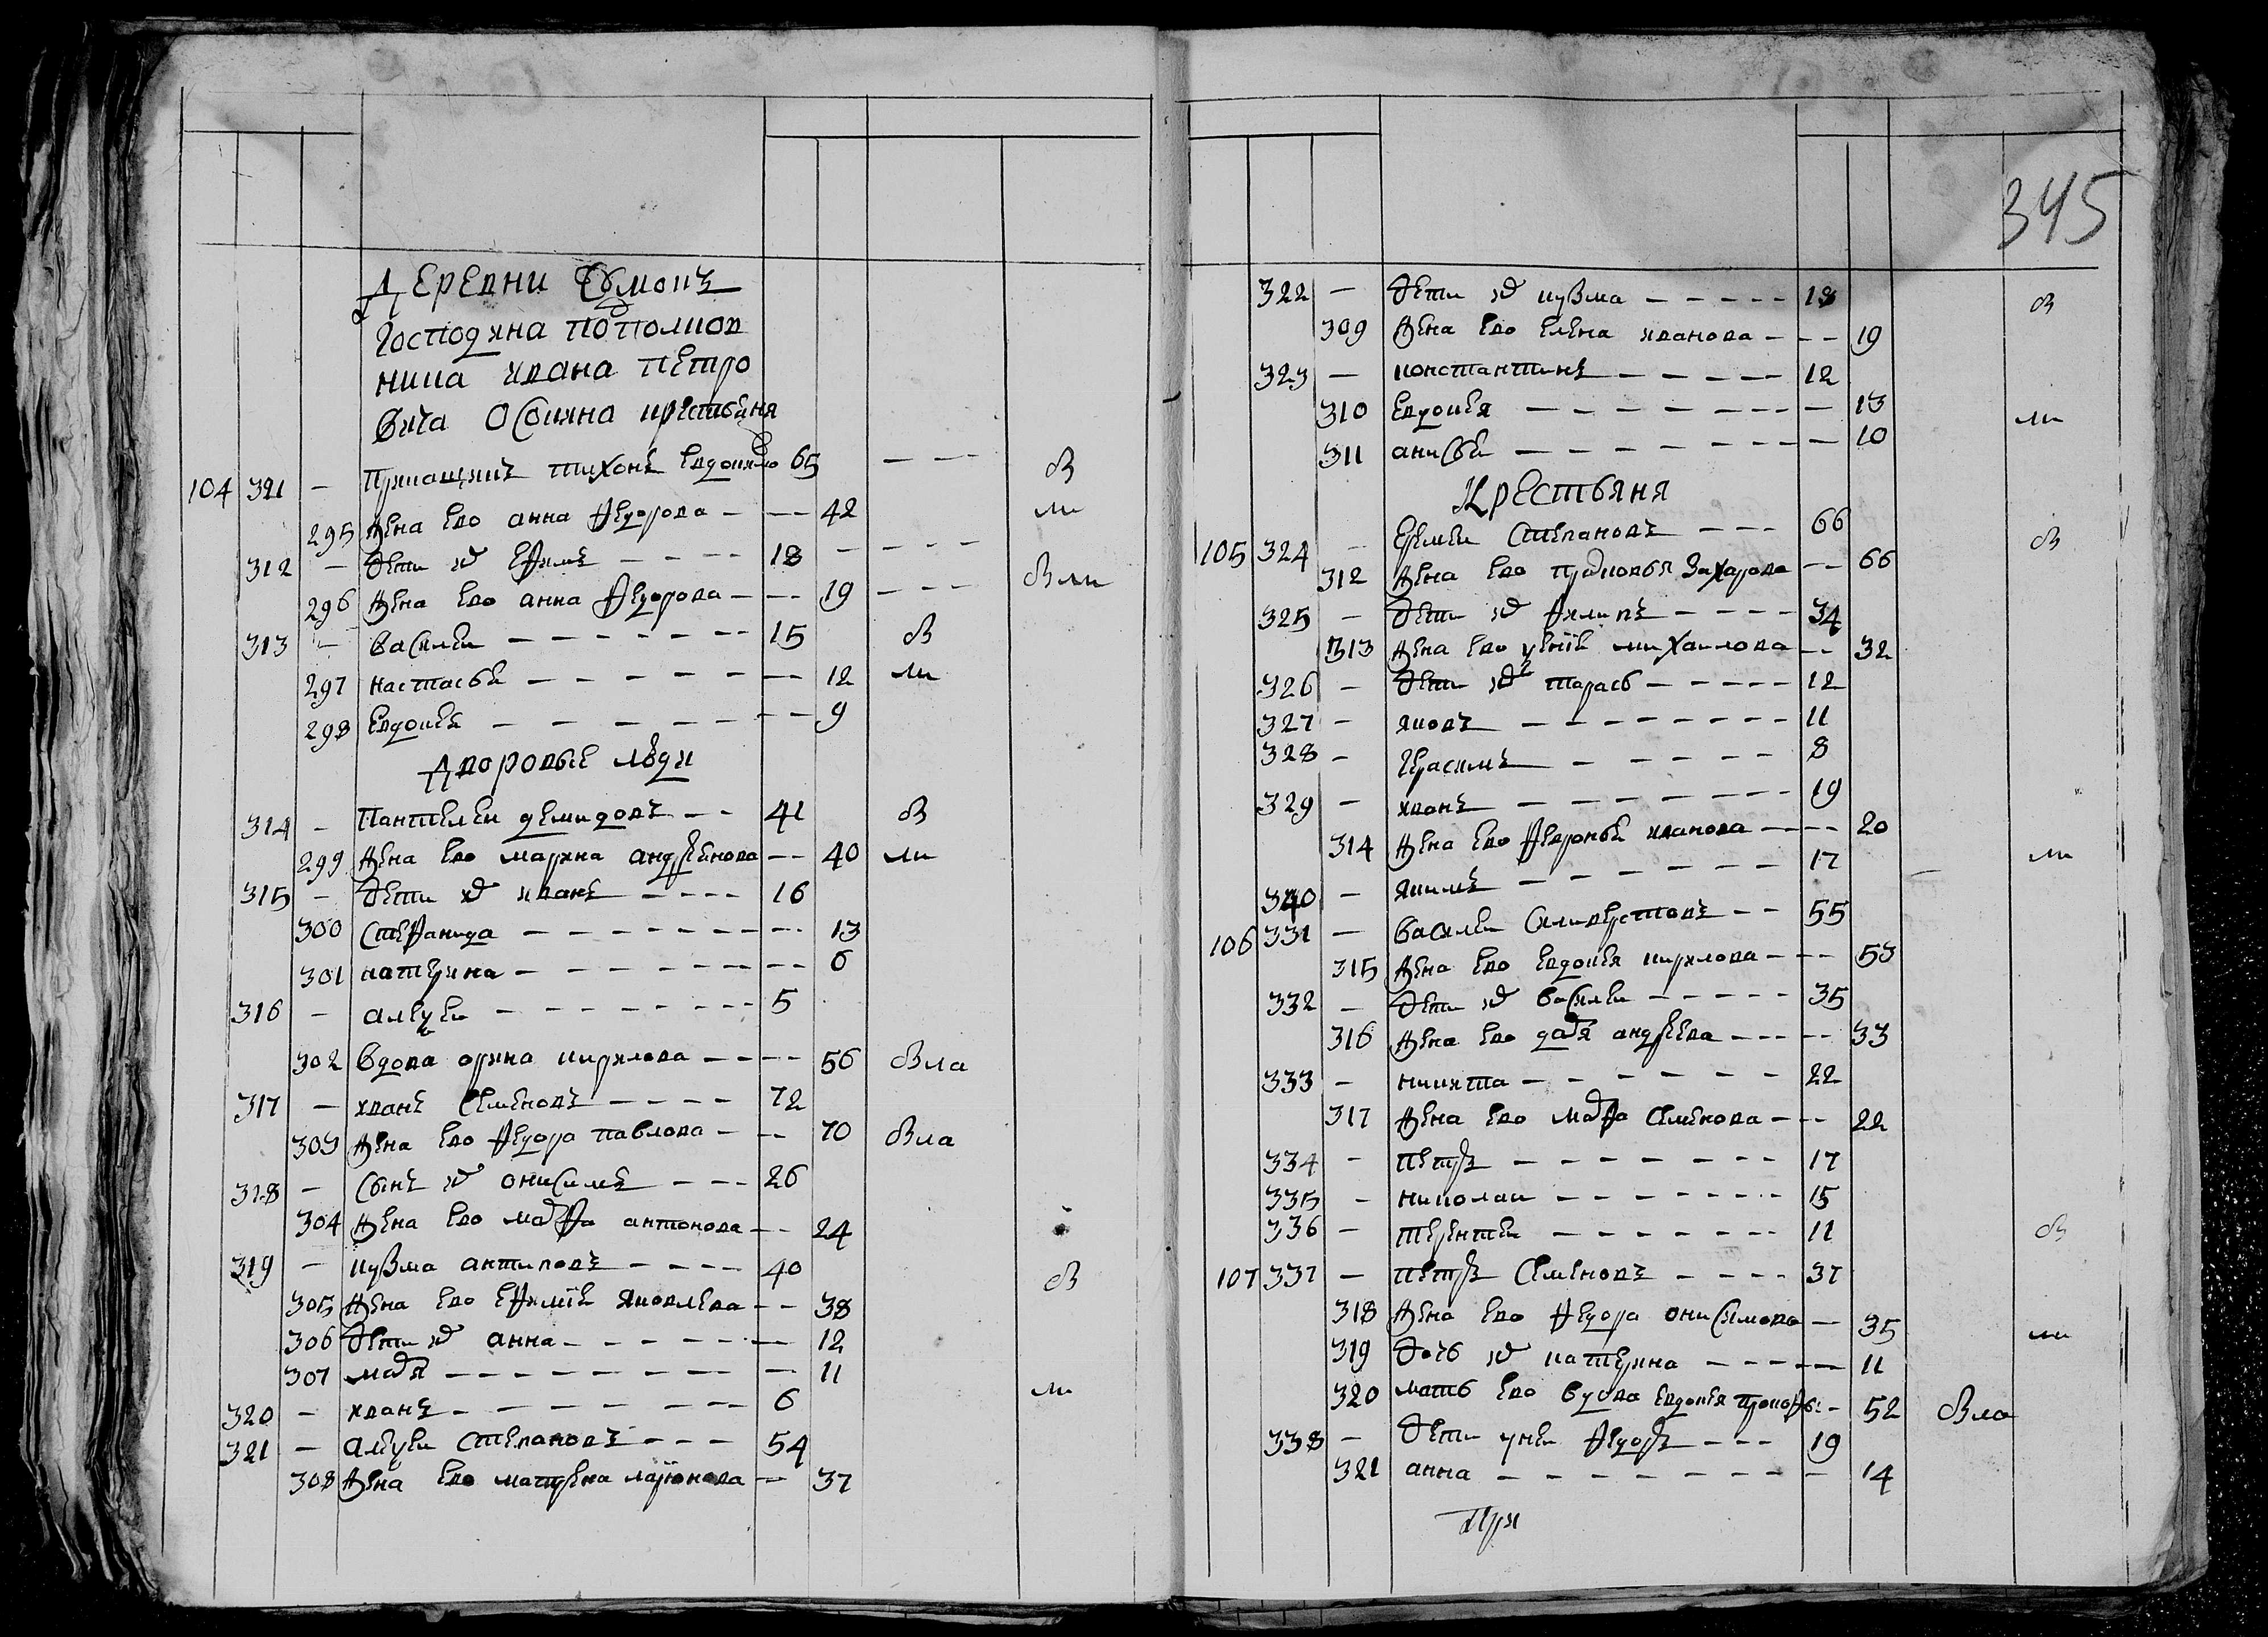 Деревни
господина подполков
ника Ивана Петро
вича крестьяня
104 321 - Прикащикъ Тихонъ Евдокимо 65 - - - в
295 жена ево Анна Федорова - - - 42 ми
312 - дети их Ефимъ - - - - 18 - - - -
296 жена ево Анна Федорова - - - 19 - - - в ми
313 - Василеи - - - - - - - 15 в
297 Настасья - - - - - - - - 12 ми
298 Евдокея - - - - - - - - 9
Дворовые люди
314 - Пантелеи Демидовъ - - 41 в
299 жена ево Марина Андреинова - - 40 ми
315 - дети их Иванъ - - - - 16
300 Стефанида - - - - - - - - - 13
301 Катерина - - - - - - - - - 6
316 - Алексеи - - - - - - - - 5
302 вдова Орина Кирилова - - - - 56 вла
317 - Иванъ Семеновъ - - - - 72
303 жена ево Федора Павлова - - - 70 вла
318 - сынъ их Онисимъ - - - 26
304 жена ево Марфа Антонова - - 24
319 - Кузма Антиповъ - - - - 40 в
305 жена ево Ефимiя Яковлева - - 38
306 дети их Анна - - - - - - - 12
307 Марья - - - - - - - - - 11
320 - Иванъ - - - - - - - - 6 ми
321 - Алексеи Степановъ - - - 54
308 жена ево Матрена Ларiонова - 37
345
322 - дети их Кузма - - - - - 18 в
309 жена ево Елена Иванова - - - 19
323 - Константинъ - - - - - 12
310 Евдокея - - - - - - - - 13 ми
311 Анисья - - - - - - - - 10
Крестьяня
105 324 - Еремеи Степановъ - - - 66 в
312 жена ево Прасковья Захарова - - 66
325 - дети их Филипъ - - - - 34
313 жена ево Ксенiя Михаилова - - 32
326 - дети их 2 Тарасъ - - - - - 12
327 - Яковъ - - - - - - - - 11
328 - Герасимъ - - - - - - 8
329 - Иванъ - - - - - - - - 19
314 жена ево Февронья Иванова - - - - 20
340 - Якимъ - - - - - - - 17 ми
106 331 - Василеи Силивестровъ - - 55
315 жена ево Евдокея Кирилова - - - 53
332 - дети их Василеи - - - - - 35
316 жена ево Дарья Андреева - - - - - 33
333 - Никита - - - - - - - 22
317 жена ево Марфа Семенова - - - 22
334 - Петръ - - - - - - - - 17
335 - Николаи - - - - - - - 15
336 - Терентеи - - - - - - - 11 в
107 337 - Петръ Семеновъ - - - - 37
318 жена ево Федора Онисимова - 35
319 дочь их Катерина - - - - - 11 ми
320 мать ево вдова Евдокея - 52 вла
338 - дети у неи Федоръ - - - 19
321 Анна - - - - - - - - - 14
При